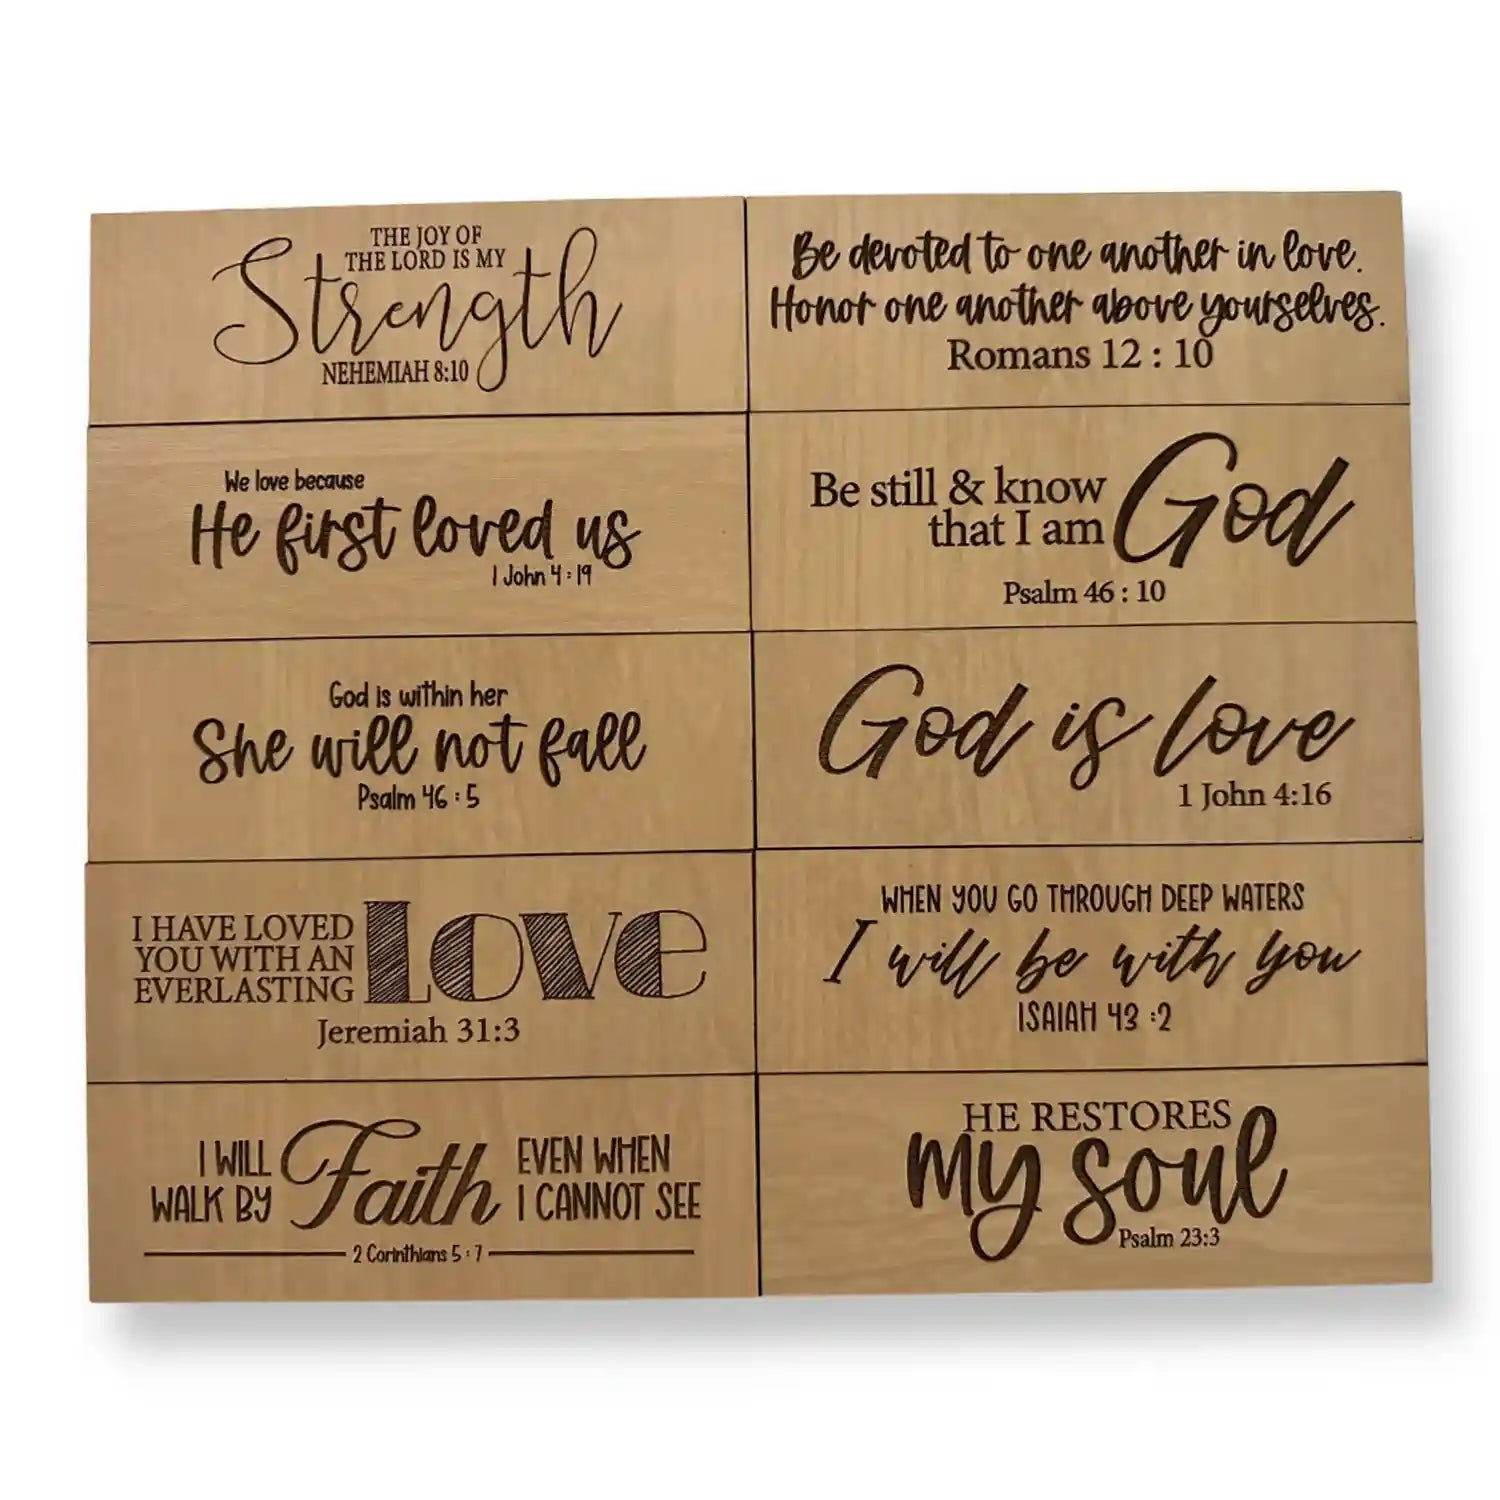 THE JOY OF
THE LORD IS MY
Strength
NEHEMIAH 8:10
Be devoted to one another in love.
Honor one another above yourselves.
Romans 12 : 10
We love because
He first loved us
1 John 4 : 19
Be still & know
that I am God
Psalm 46 : 10
God is within her
She will not fall
Psalm 46 : 5
God is love
1 John 4:16
I HAVE LOVED
YOU WITH AN
EVERLASTING
LOVE
Jeremiah 31:3
WHEN YOU GO THROUGH DEEP WATERS
I will be with you
ISAIAH 43 :2
I WILL
WALK BY
Faith
EVEN WHEN
I CANNOT SEE
2 Corinthians 5 : 7
HE RESTORES
my soul
Psalm 23:3